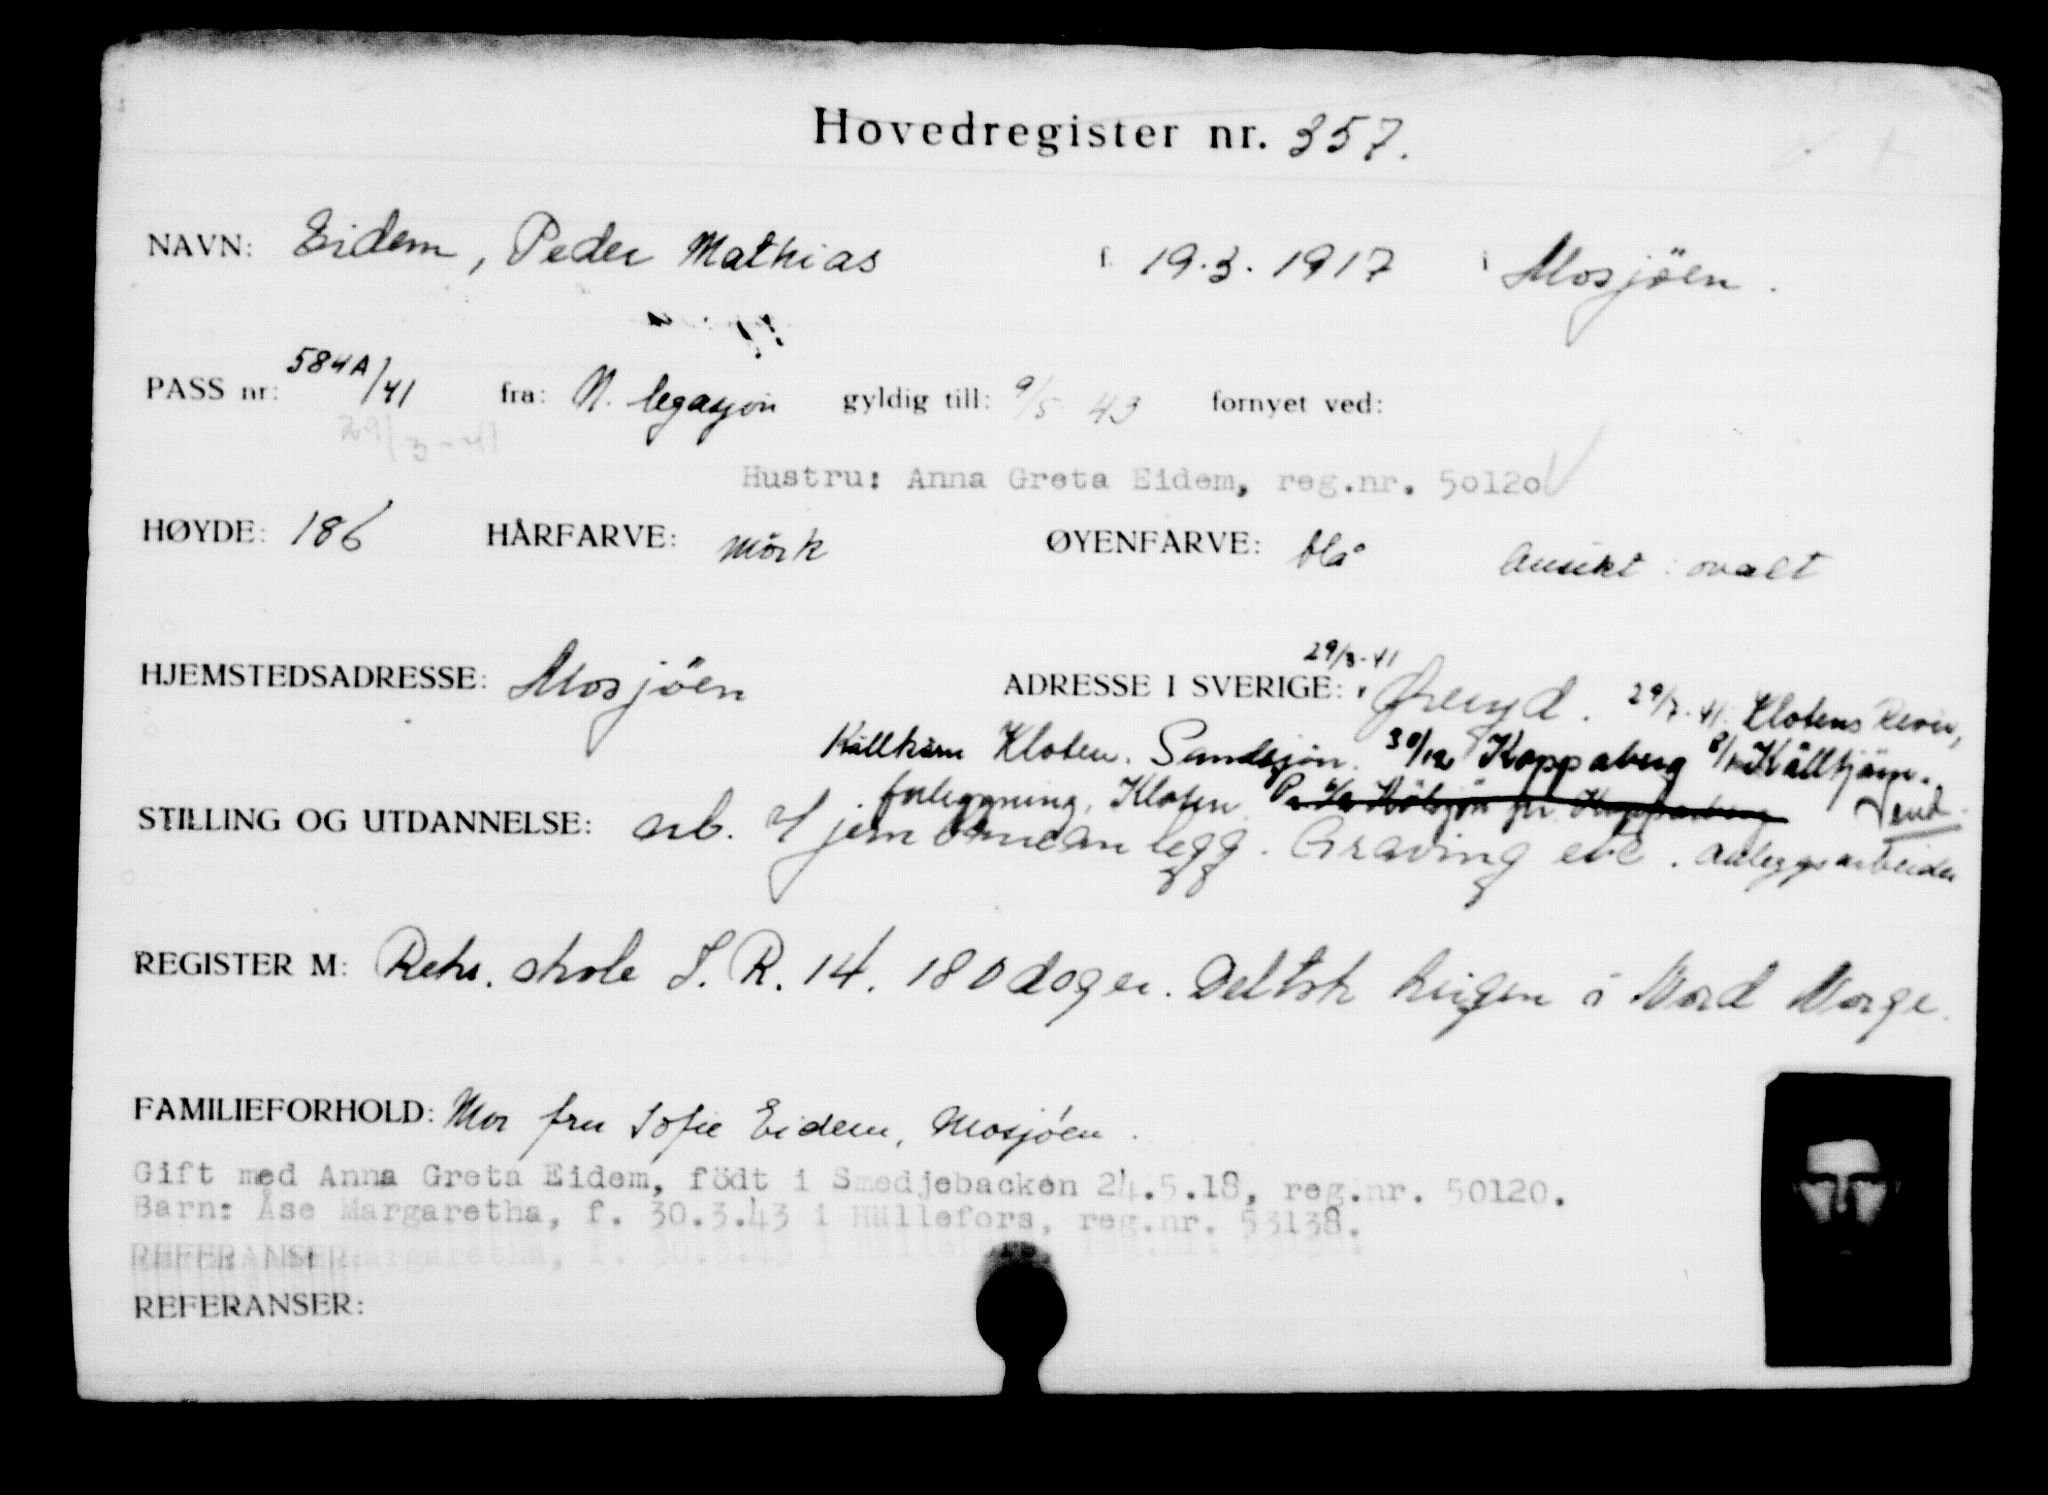 Hovedregister nr. 357.
NAVN: Eidem, Peder Mathias f. 19.3.1917 i Mosjöen.
PASS nr: 584A/41 fra: N. legasjon gyldig till: 9/5 43 fornyet ved:
29/3-41
Hustru: Anna Greta Eidem, reg.nr. 50120
HØYDE: 186 HÅRFARVE: mörk ØYENFARVE: blå Ansikt: ovalt
29/3-41
HJEMSTEDSADRESSE: Mosjöen ADRESSE I SVERIGE: Öreryd. 29/7-41. Klotens Revir,
Källtärn Kloten. Sandsjön. 30/12 Kopparberg 8/1 Källtjärn.
forlegning, Kloten. Vend.
STILLING OG UTDANNELSE: arb. Hjem legg. Graving etc. anleggsarbeider
REGISTER M: Rekr. skole I.R. 14. 180 dager. Deltok krigen i Nord Norge.
FAMILIEFORHOLD: Mor fru Sofie Eidem, Mosjöen.
Gift med Anna Greta Eidem, födt i Smedjebacken 24.5.18, reg.nr. 50120.
Barn: Åse Margaretha, f. 30.3.43 i Hällefors, reg.nr. 53138.
REFERANSER:
REFERANSER: